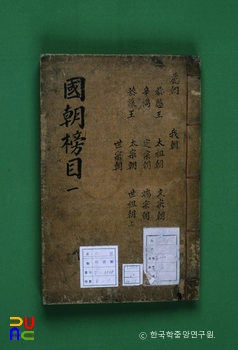 國朝榜目 一
麗朝
恭愍王
辛禑
恭讓王
我朝
太祖朝
定宗朝
太宗朝
世宗朝
文宗朝
端宗朝
世祖朝上
© 한국학중앙연구원